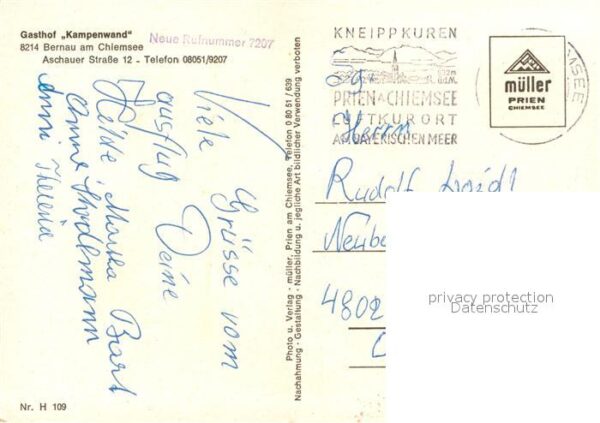 Gasthof „Kampenwand"
8214 Bernau am Chiemsee
Aschauer Straße 12 - Telefon 08051/9207
Neue Rufnummer 7207
Viele Grüsse vom
ausflug Deine
Anni Theresia
Nr. H 109
Photo u. Verlag - müller, Prien am Chiemsee, Telefon 0 80 51 / 639
Nachahmung - Gestaltung - Nachbildung u. jegliche Art bildlicher Verwendung verboten
KNEIPPKUREN
PRIEN A CHIEMSEE
LUFTKURORT
AM BAYERISCHEN MEER
müller
PRIEN
CHIEMSEE
Herrn
Rudolf
4802
privacy protection
Datenschutz